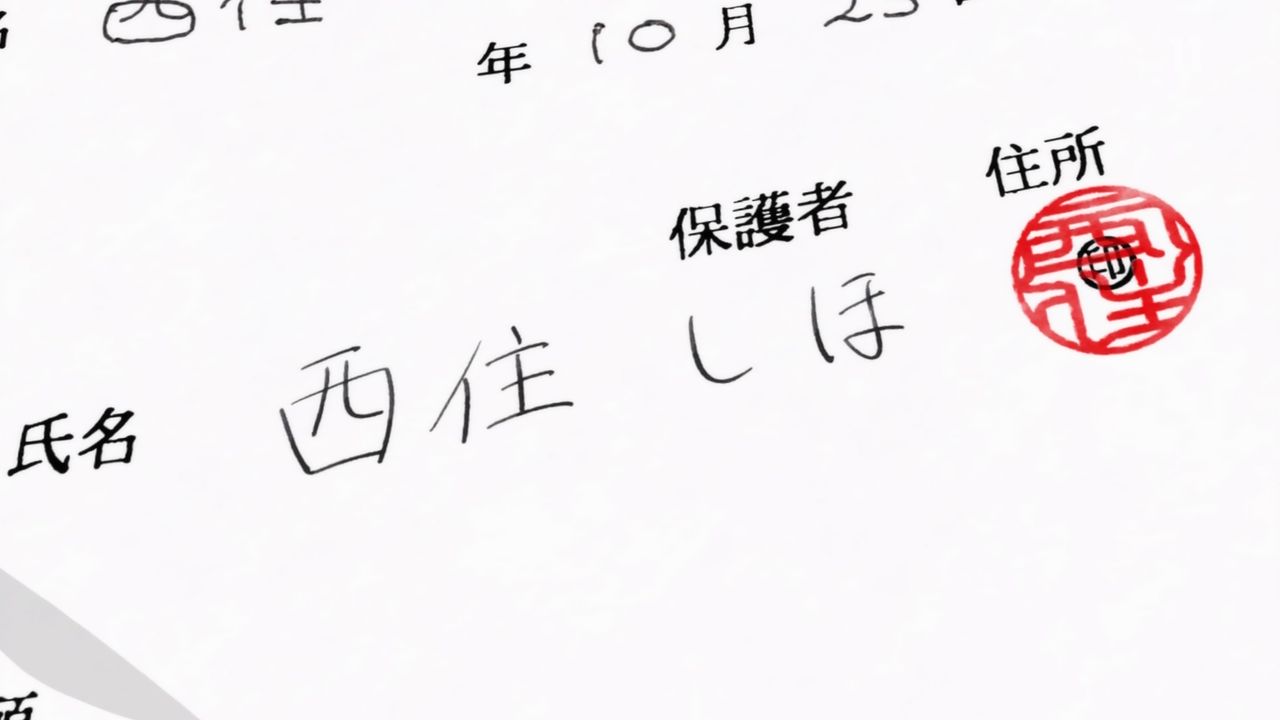 西住
年 10 月 23
保護者 住所
氏名 西住 しほ 印
西住